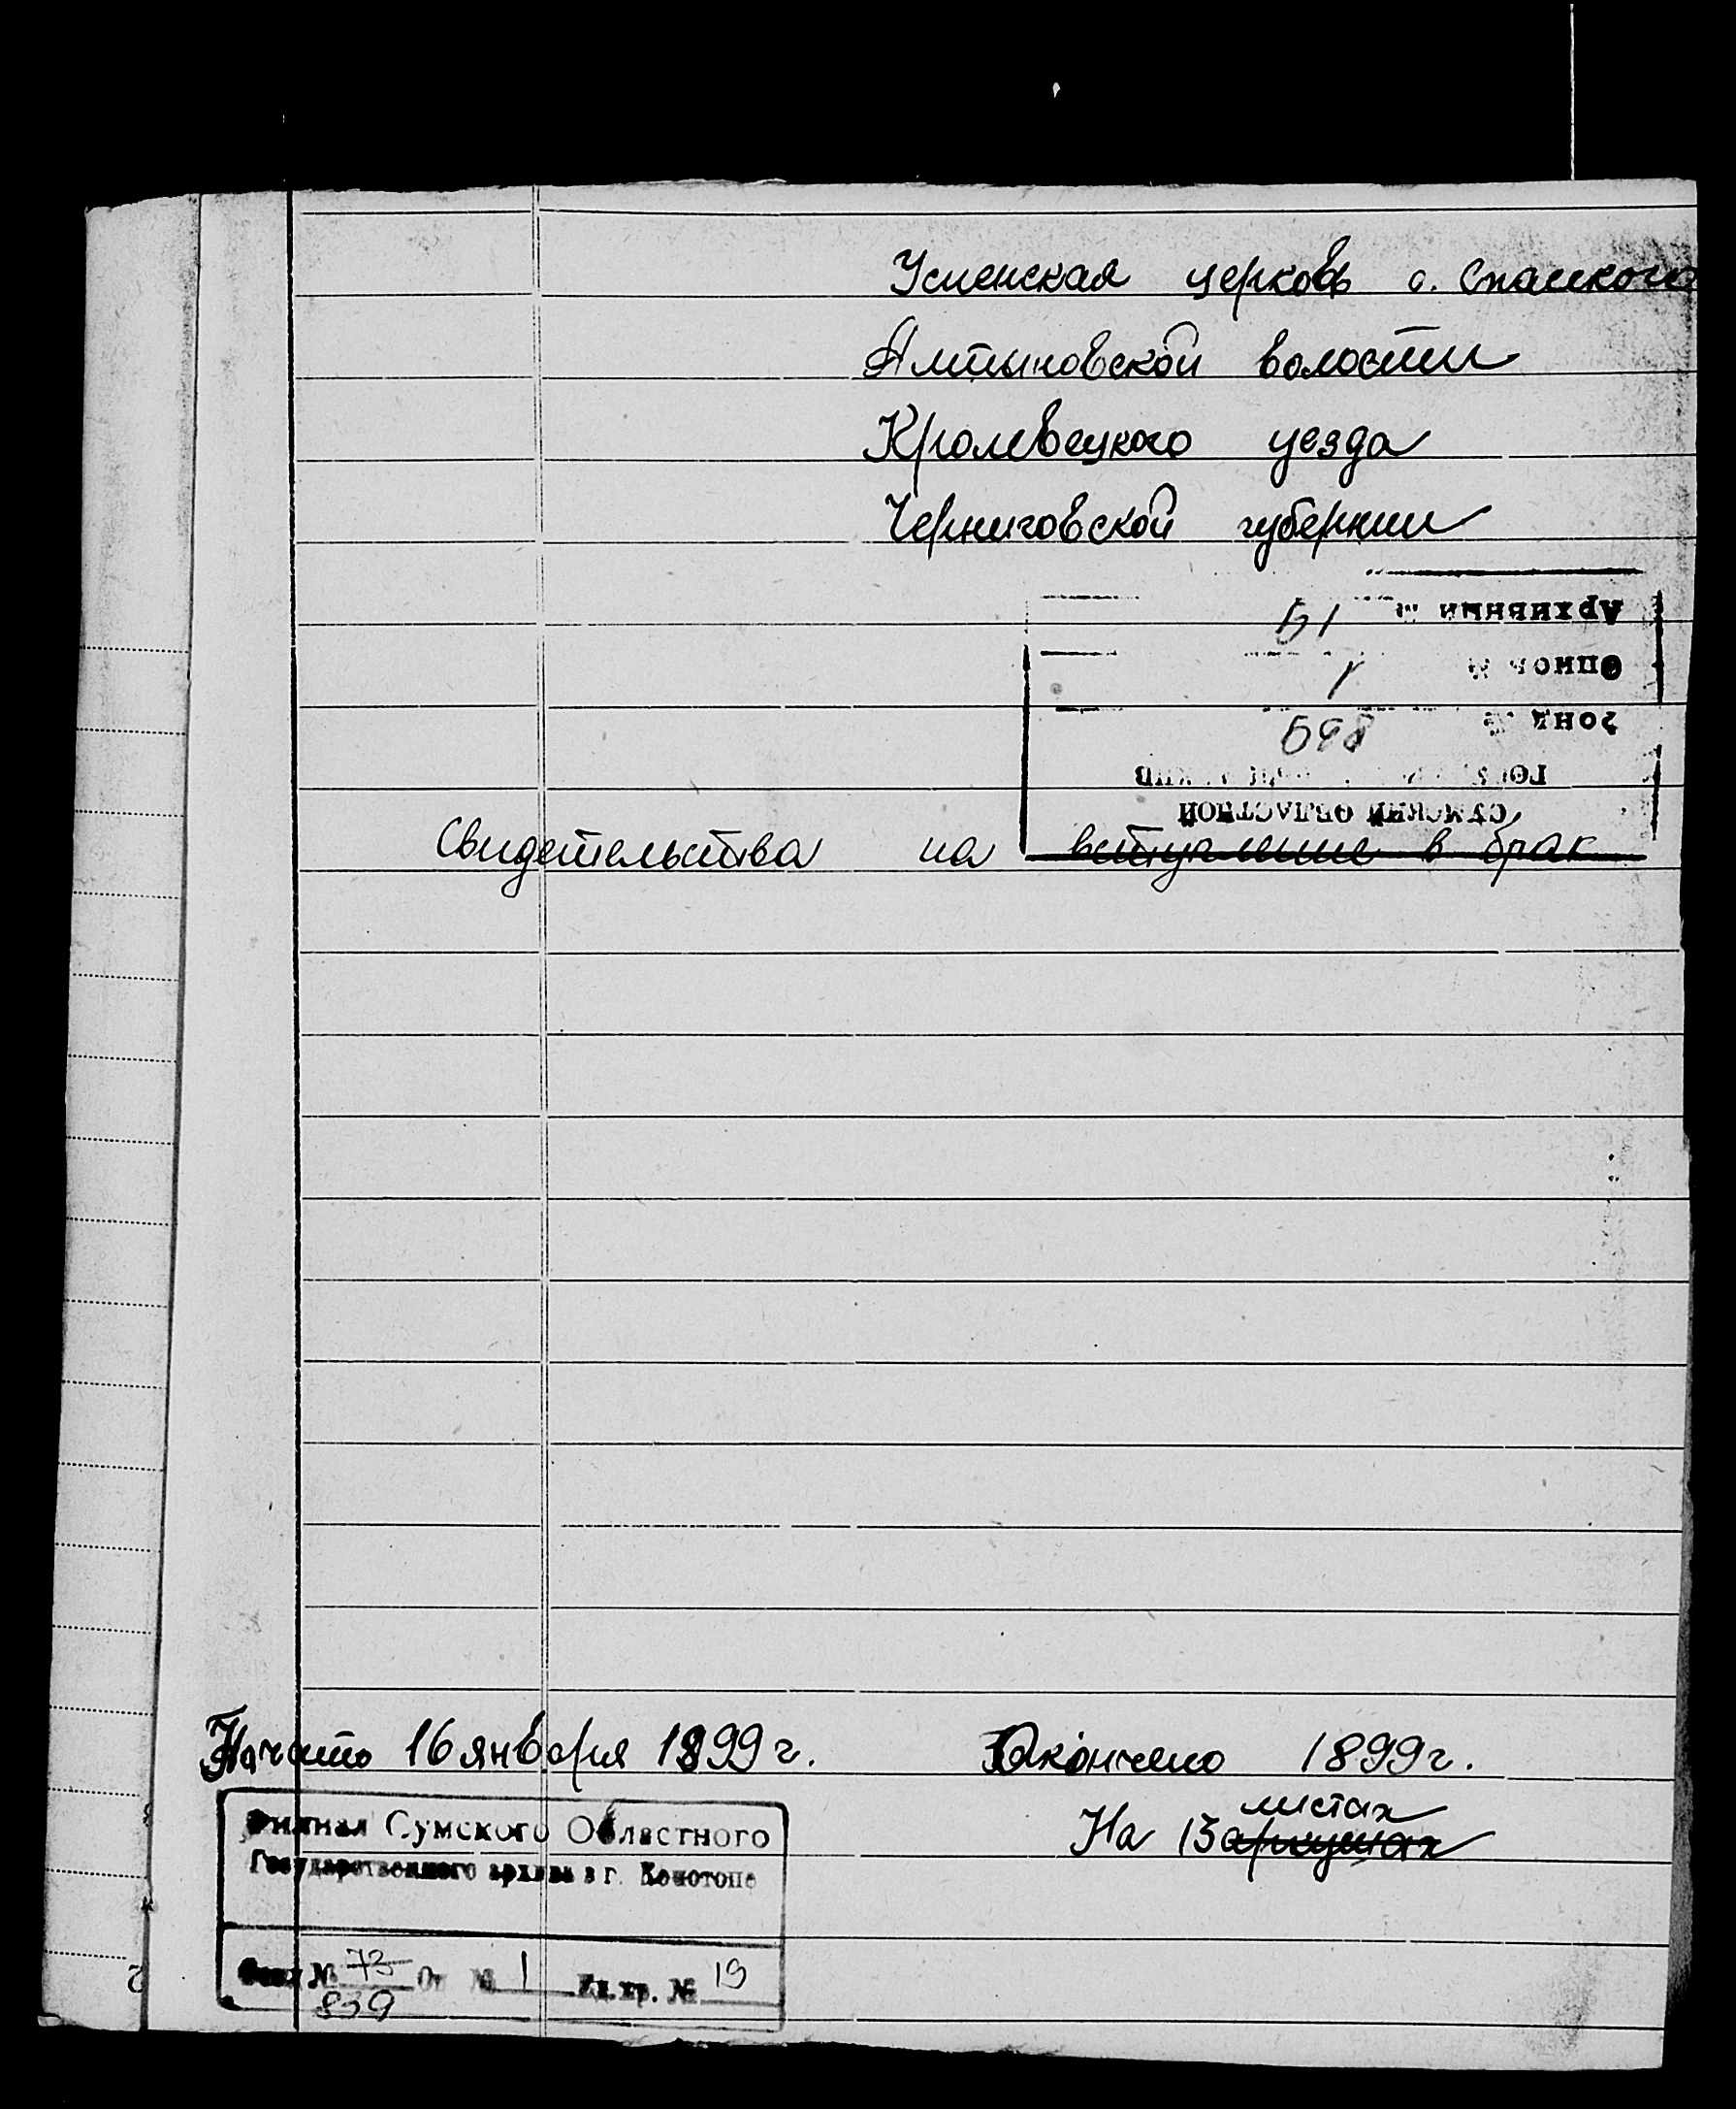 Успенская церковь с. Спасского
Алтыновской волости
Кролевецкого уезда
Черниговской губернии
Архивный №
Опись № 1
Фонд №
СУМСКИЙ ОБЛАСТНОЙ
Свидетельства на вступление в брак
Начато 16 января 1899 г. Окончено 1899 г.
листах
На 15 аркушах
Филиал Сумского Областного
Государственного архива в г. Конотопе
Фонд № 73 Оп № 1 Ед. хр. № 19
859